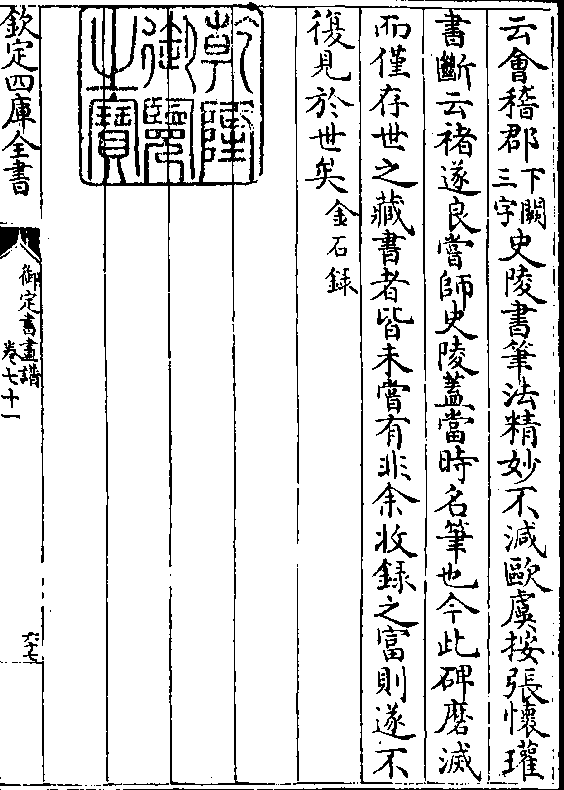 云會稽郡下闕三字史陵書筆法精妙不減歐虞按張懷瓘
書斷云褚遂良嘗師史陵蓋當時名筆也今此碑磨滅
而僅存世之藏書者皆未嘗有非余收録之富則遂不
復見於世矣金石録
乾隆御覽之寶
欽定四庫全書
御定書畫譜
卷七十一
六十七